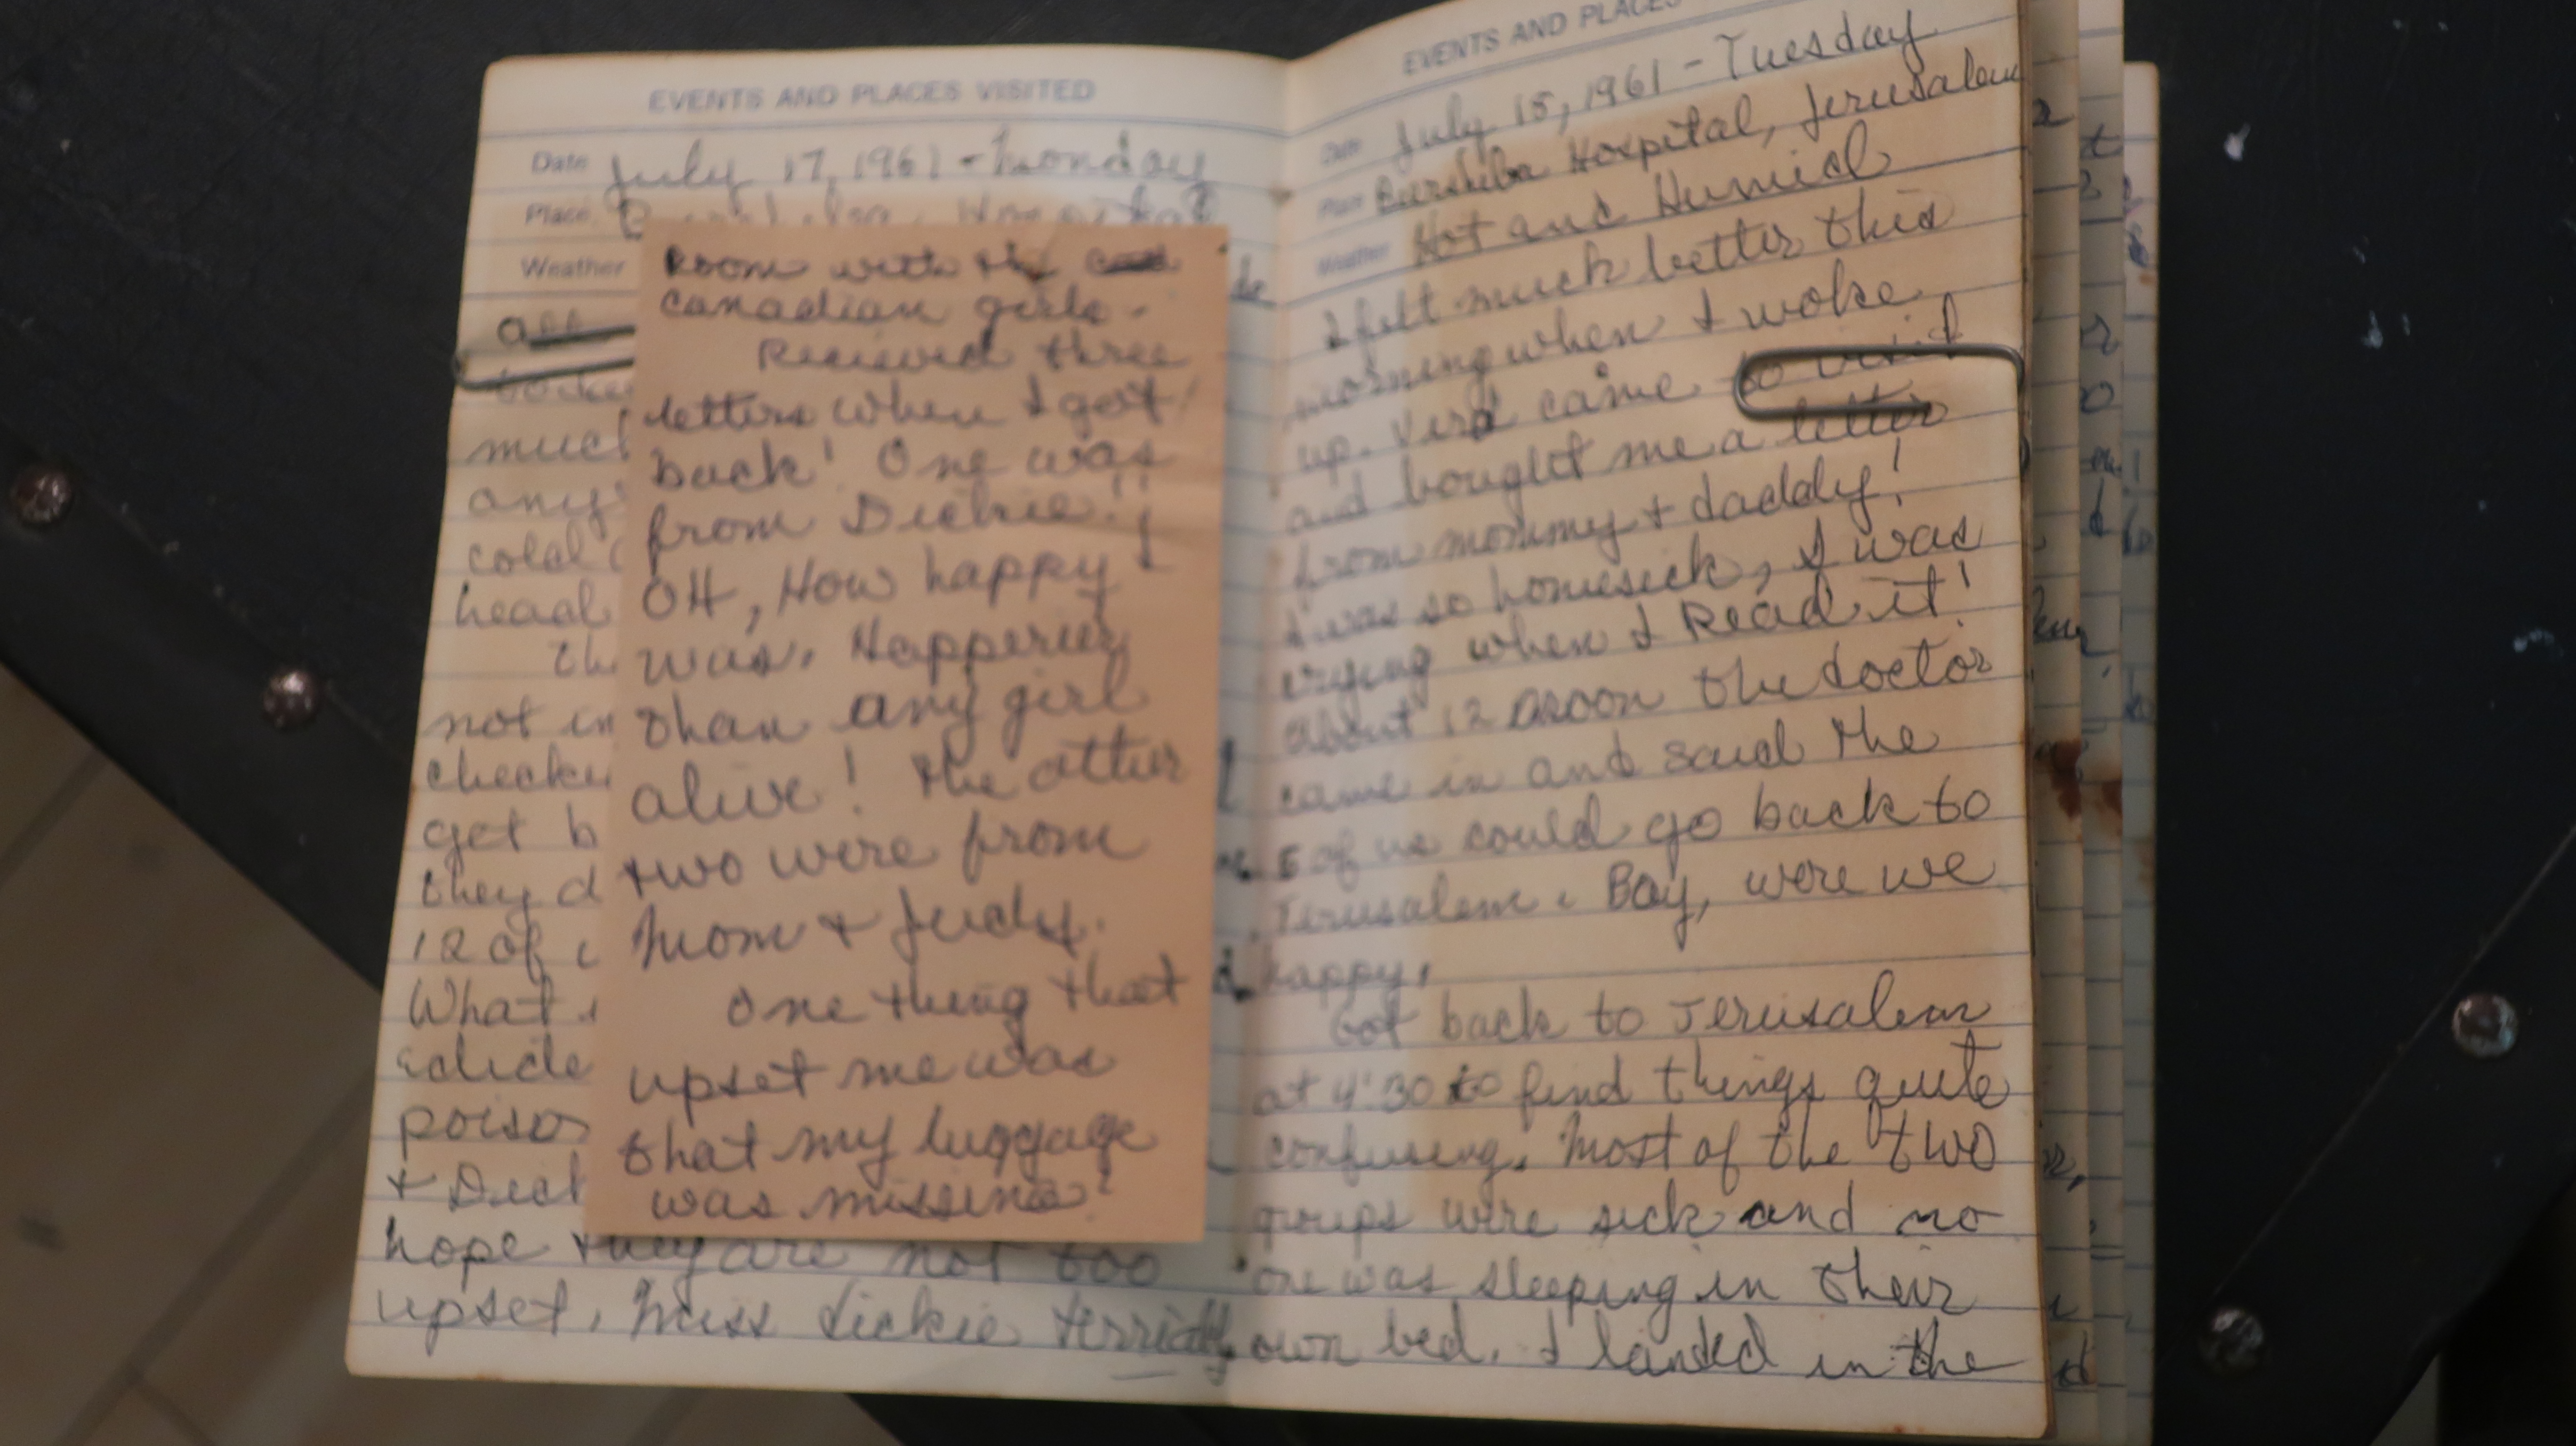 EVENTS AND PLACES VISITED
Date July 17, 1961 - Monday
Place
Weather
a
much
any
cold
head
Th
not in
checke
get b
they d
12 of
What
poiso
+ Dick
hope they are not too
upset. Miss Dickie terribly
Room with the
Canadian girls.
Recieved three
letters when I got
back! One was
from Dickie!!
OH, How happy I
was. Happerier
than any girl
alive! The other
two were from
Mom + Judy.
One thing that
upset me was
that my luggage
was missing!
EVENTS AND PLACES
Date July 18, 1961 - Tuesday
Place Hospital, Jerusalem
Weather Hot and Humid
I felt much better this
morning when I woke
up. Vera came to visit
and bought me a letter
from mommy + daddy!
I was so homesick, I was
crying when I Read it!
About 12 noon the doctor
came in and said the
5 of us could go back to
Jerusalem. Boy, were we
happy.
Got back to Jerusalem
at 4:30 to find things quite
confusing. Most of the two
groups were sick and no
one was sleeping in their
own bed. I landed in the